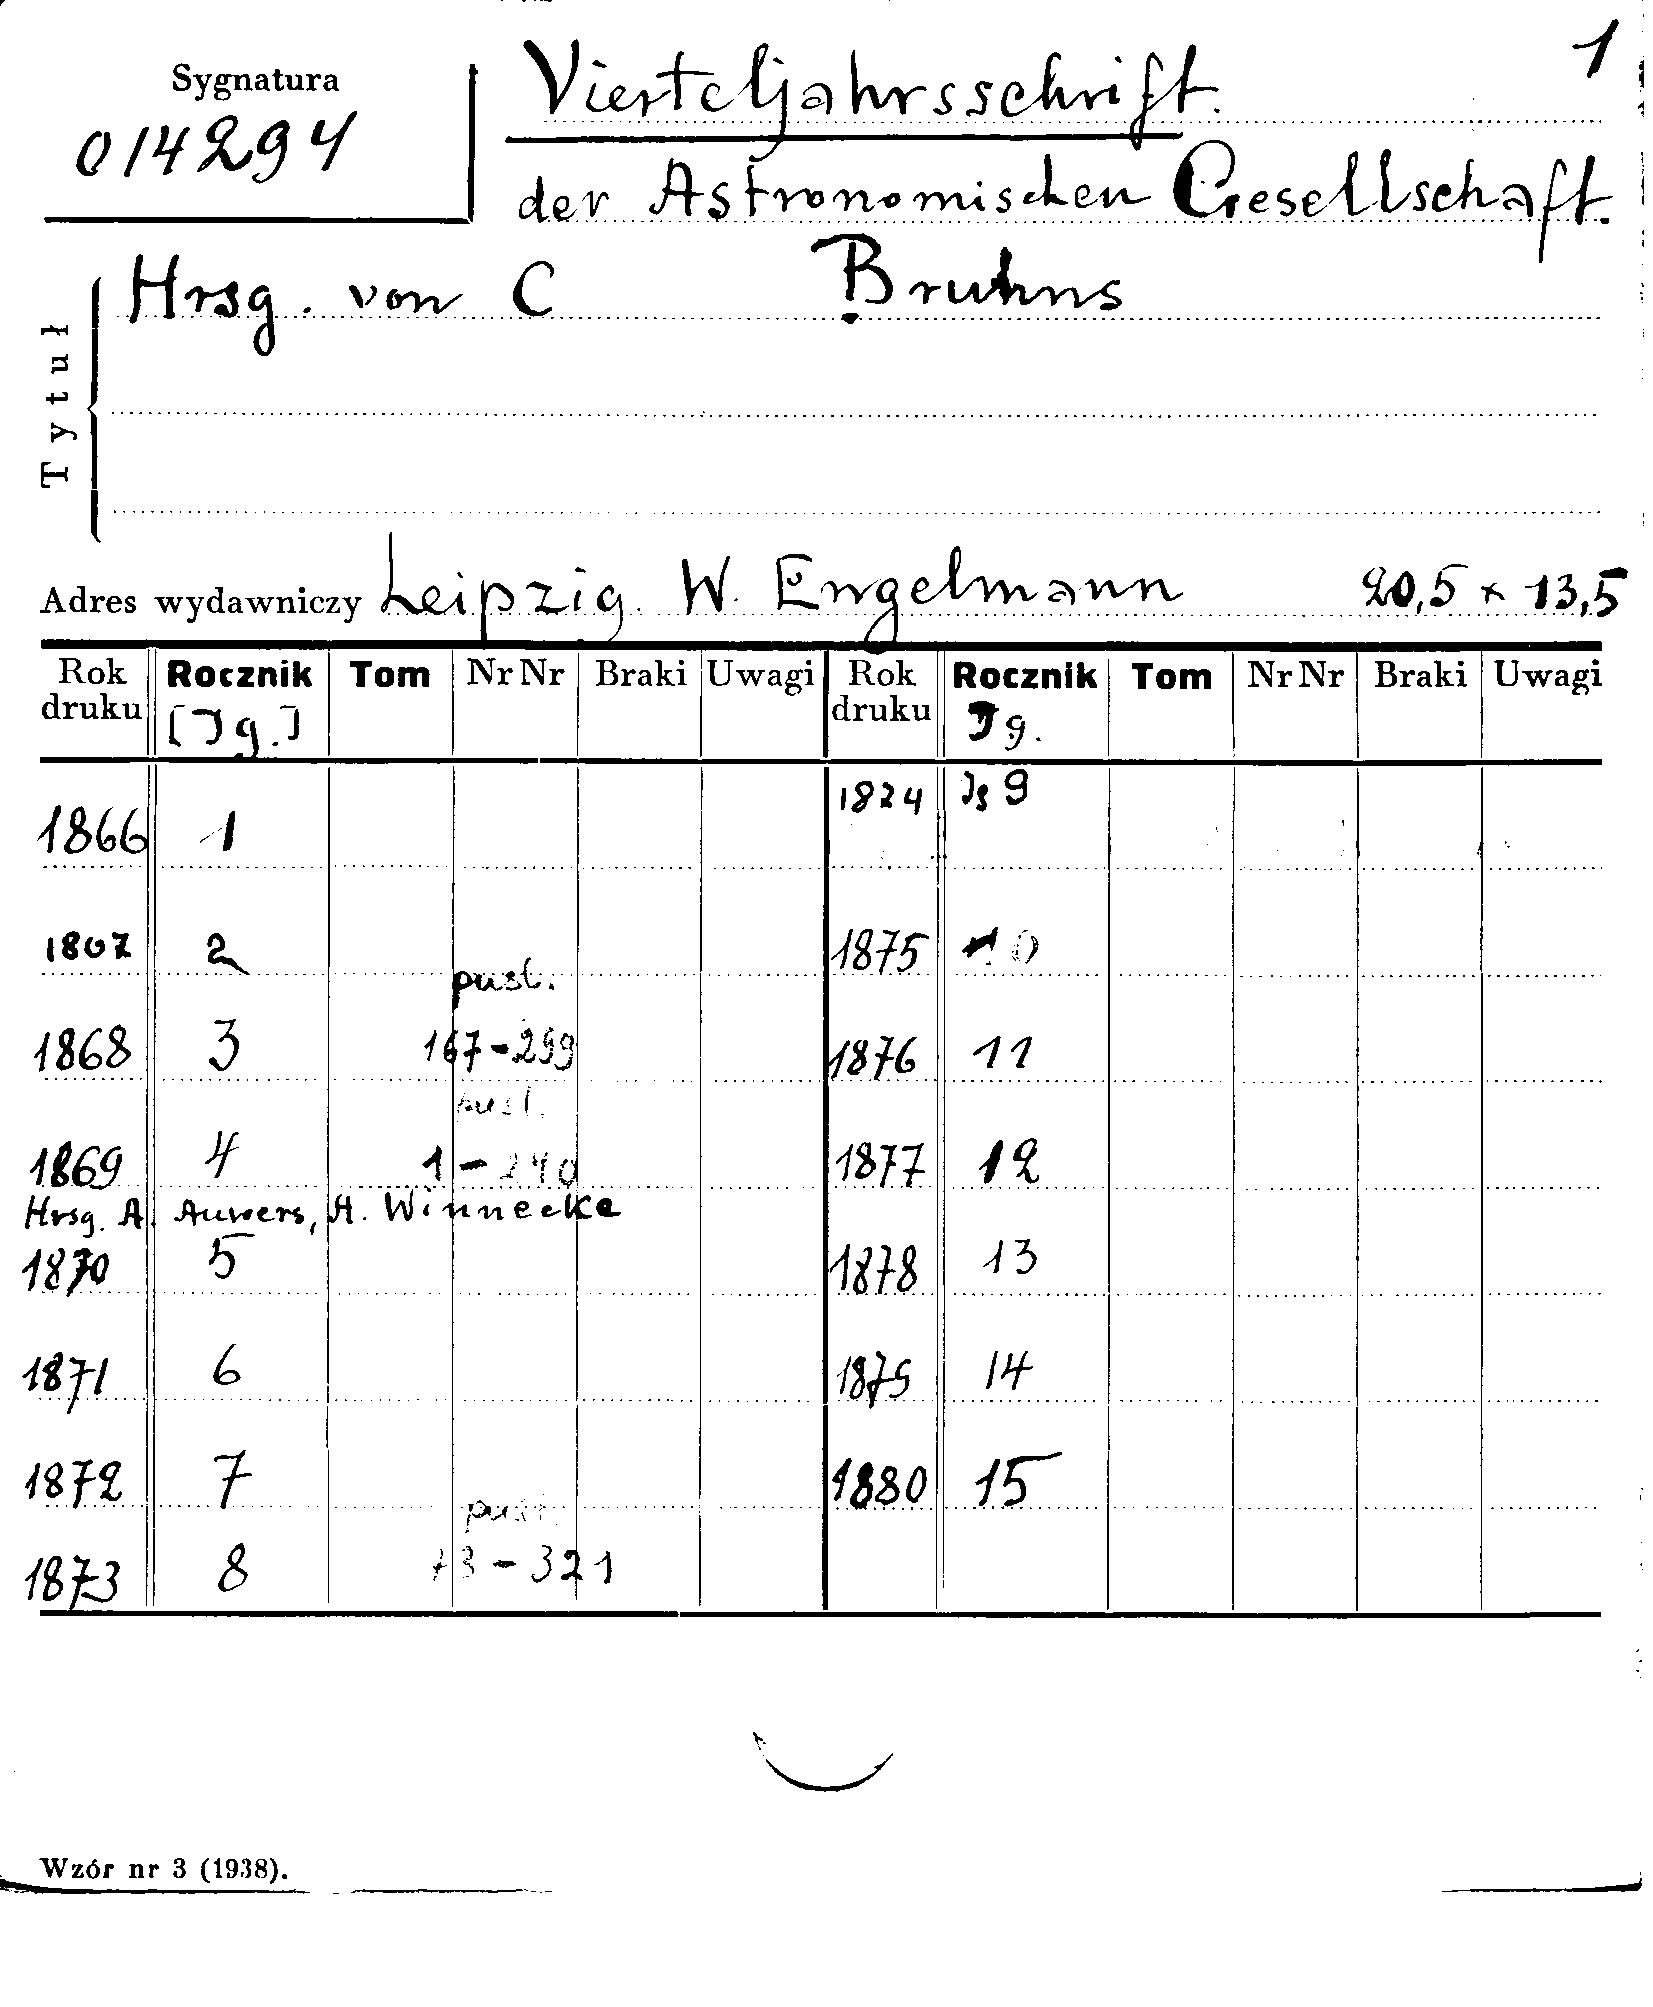 1
Sygnatura
014294
Vierteljahrsschrift.
der Astronomischen Gesellschaft.
Tytuł
Hrsg. von C Bruhns
Adres wydawniczy Leipzig. W. Engelmann 20,5 x 13,5
Rok druku Rocznik Tom Nr Nr Braki Uwagi Rok druku Rocznik Tom Nr Nr Braki Uwagi
[Jg.] Jg.
1874 Jg 9
1866 1
1867 2 1875 10
pust.
1868 3 167-299 1876 11
pust.
1869 4 1-240 1877 12
Hrsg. A. Auwers, A. Winnecke
1870 5 1878 13
1871 6 1879 14
1872 7 1880 15
pust.
1873 8 73-321
Wzór nr 3 (1938).